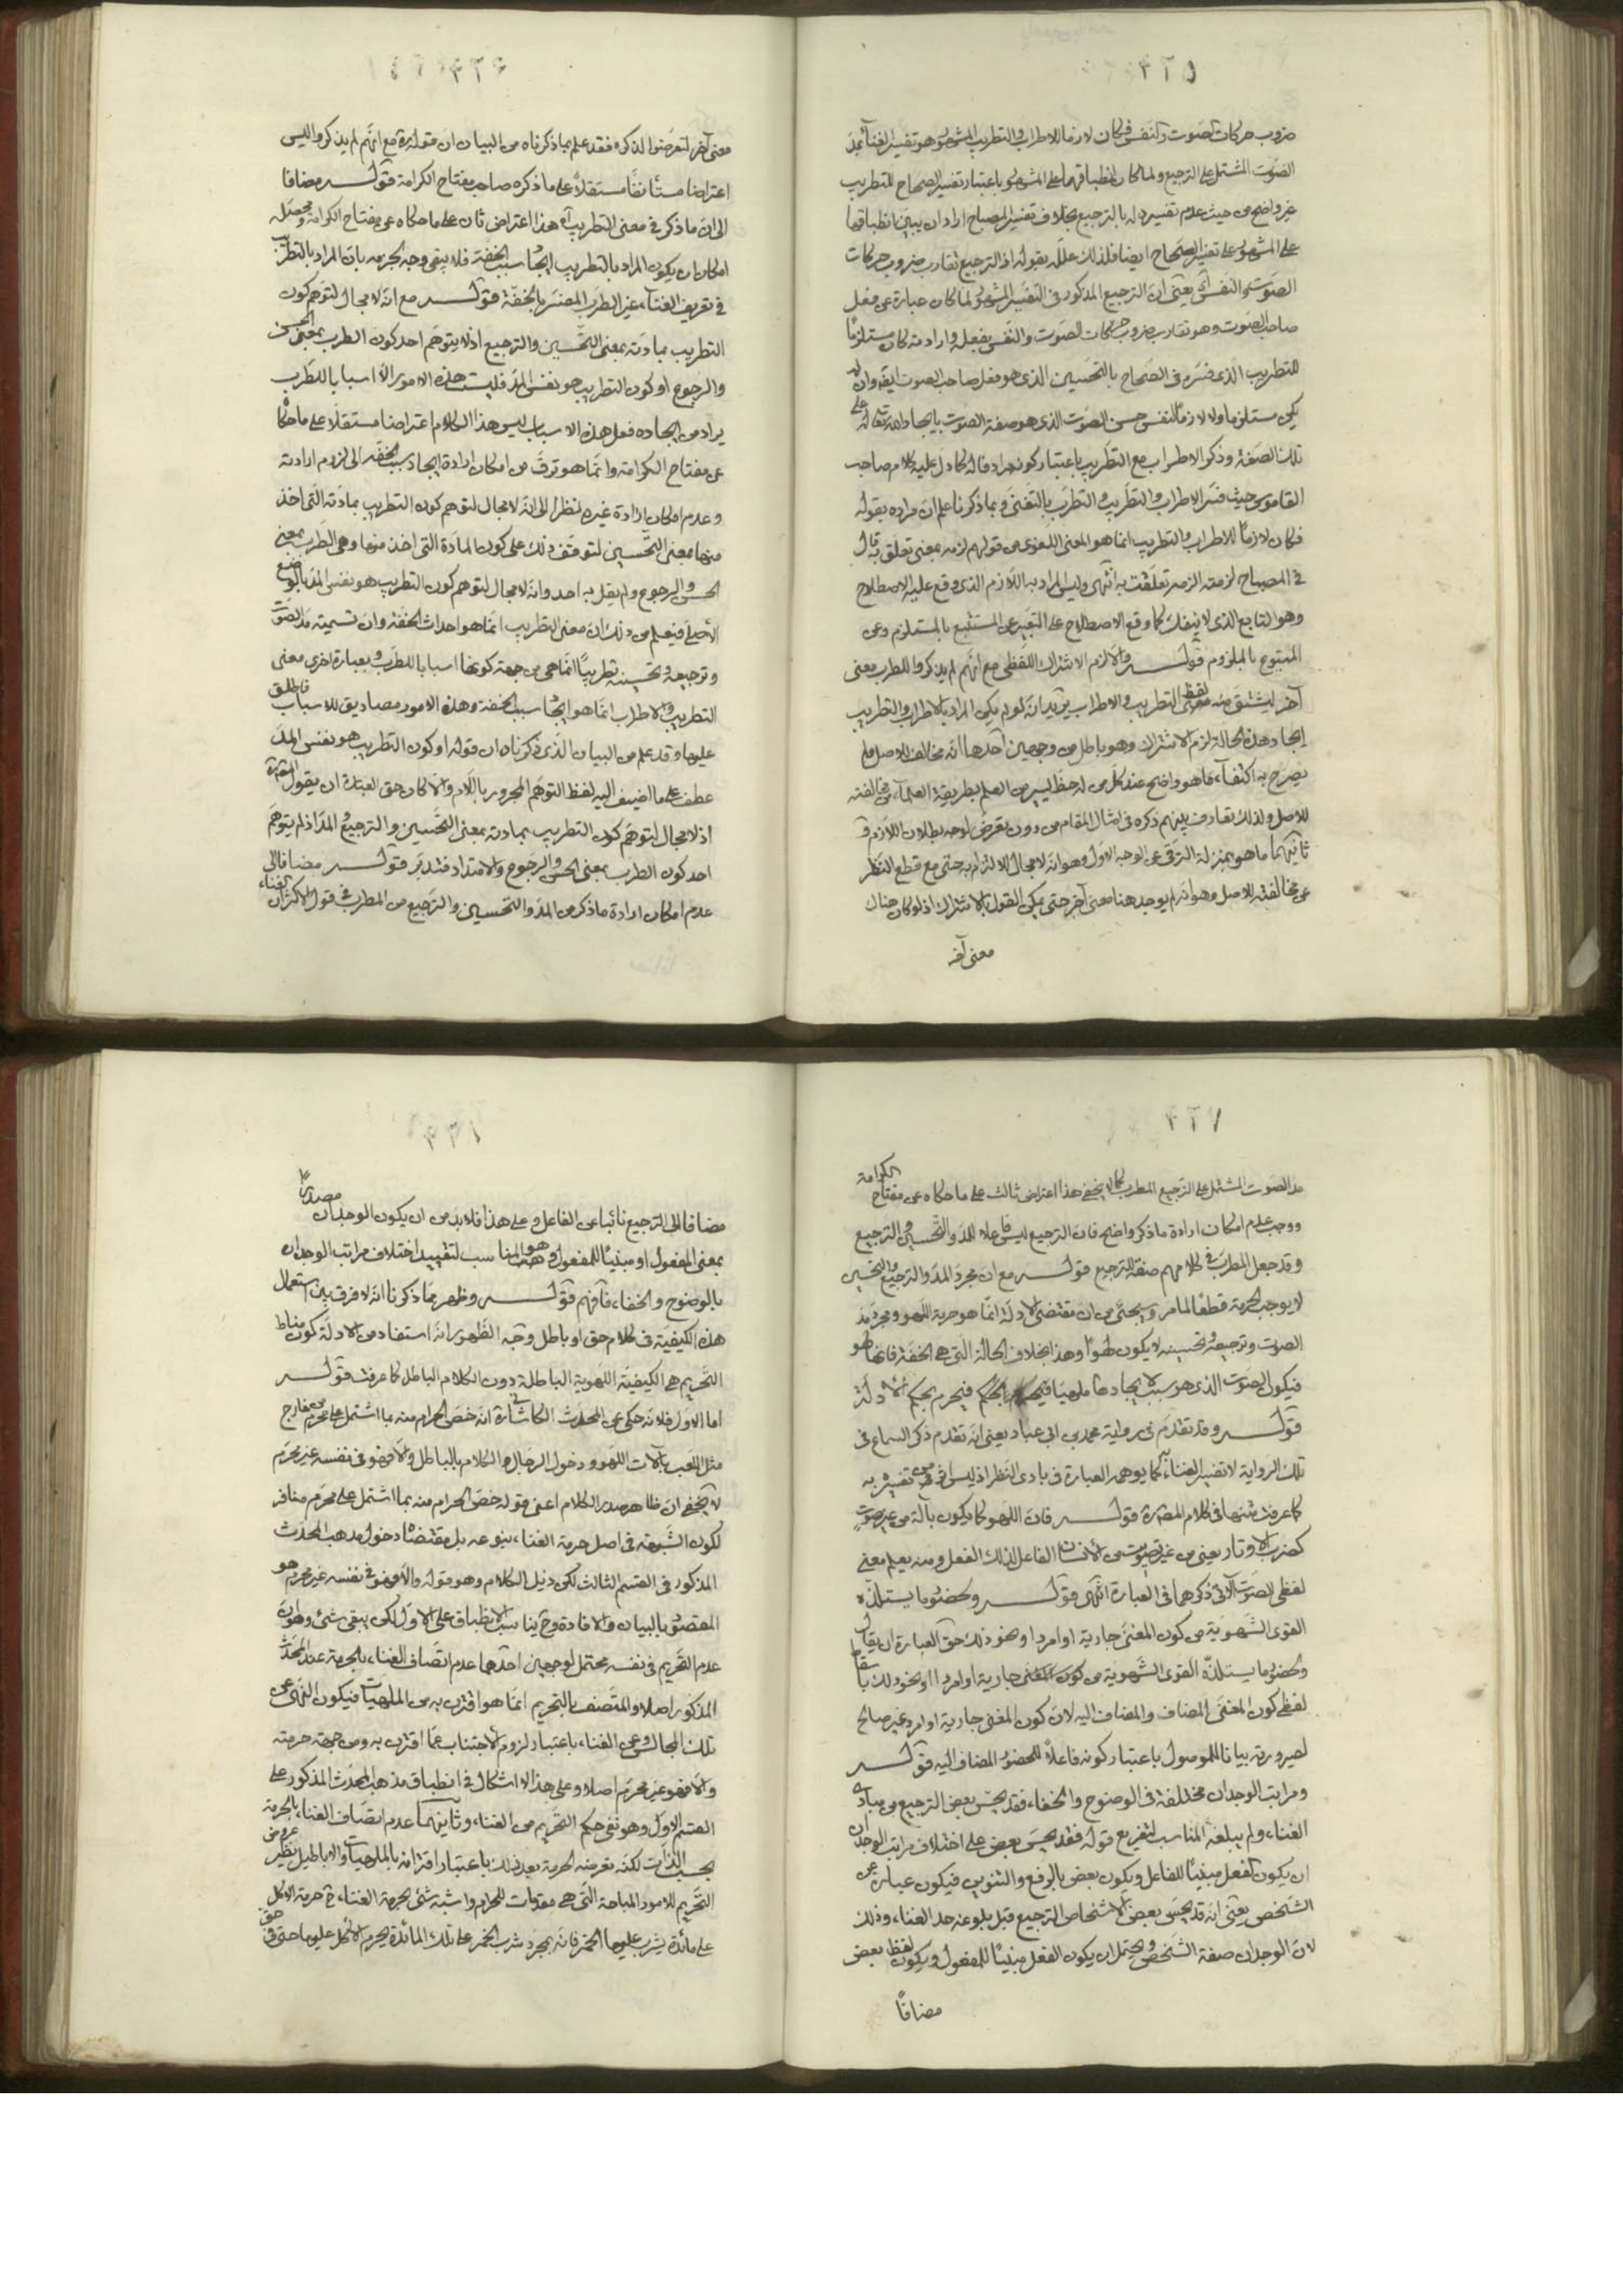 ٤٢٥
ضروب حركات الصوت والنفس فكان لازما للاطراب والتطريب المشهور هو تفسير الغناء بمد
الصوت المشتمل على الترجيع ولما كان انطباقهما على المشهور باعتبار تفسير الصحاح للتطريب
غير واضح من حيث عدم تفسيره له بالترجيع بخلاف تفسير المصباح اراد ان يبين انطباقهما
على المشهور على تفسير الصحاح ايضا فلذلك علله بقوله اذ الترجيع تقارب ضروب حركات
الصوت والنفس اه يعنى ان الترجيع المذكور فى التفسير المشهور لما كان عبارة عن فعل
صاحب الصوت وهو تقارب ضروب حركات الصوت والنفس بفعله وارادته كان مستلزما
للتطريب الذى فسره فى الصحاح بالتحسين الذى هو فعل صاحب الصوت ايضا وان لم
يكن مستلزما ولا لازما لنفس حسن الصوت الذى هو صفة الصوت بايجاد الله تعالى له على
تلك الصفة وذكر الاطراب مع التطريب باعتبار كونه مرادفا له كما دل عليه كلام صاحب
القاموس حيث فسر الاطراب والتطريب والتطرب بالتغنى وبما ذكرنا علم ان مراده بقوله
فكان لازما للاطراب والتطريب انما هو المعنى اللغوى من قولهم لزمه بمعنى تعلق به قال
فى المصباح لزمته الزمه تعلقت به انتهى وليس المراد به اللازم الذى وقع عليه الاصطلاح
وهو التابع الذى لا ينفك كما وقع الاصطلاح على التعبير عن المستتبع بالمستلزم وعن
المتبوع بالملزوم قوله والا لزم الاشتراك اللفظى مع انهم لم يذكروا للطرب معنى
آخر ليشتق منه لفظ التطريب والاطراب يريد انه لو لم يكن المراد بالاطراب والتطريب
ايجاد هذه الحالة لزم الاشتراك وهو باطل من وجهين احدهما انه مخالف للاصل ولم
يصرح به اكتفاء بما هو واضح عند كل من له حظ يسير من العلم بطريقة العلماء من مخالفته
للاصل ولذلك تعارف بينهم ذكره فى امثال المقام من دون تعرض لوجه بطلان اللازم و
ثانيهما ما هو بمنزلة الترقى عن الوجه الاول وهو انه لا مجال للالتزام به حتى مع قطع النظر
عن مخالفته للاصل وهو انه لم يوجد هنا معنى آخر حتى يمكن القول بالاشتراك اذ لو كان هناك
معنى آخر
٤٢٦
معنى آخر لتعرضوا لذكره فقد علم بما ذكرناه من البيان ان قوله مع انهم لم يذكروا ليس
اعتراضا مستأنفا مستقلا على ما ذكره صاحب مفتاح الكرامة قوله مضافا
الى ان ما ذكر فى معنى التطريب اه هذا اعتراض ثان على ما حكاه عن مفتاح الكرامة ومحصله
امكان ان يكون المراد بالتطريب ايجاد سبب الخفة فلا يبقى وجه لجزمه بان المراد بالتطريب
فى تعريف الغناء غير الطرب المفسر بالخفة قوله مع انه لا مجال لتوهم كون
التطريب بمادته بمعنى التحسين والترجيع اذ لا يتوهم احد كون الطرب بمعنى الحسن
والرجوع او كون التطريب هو نفس المد فليست هذه الامور الا اسبابا للطرب
يراد من ايجاده فعل هذه الاسباب ليس هذا الكلام اعتراضا مستقلا على ما حكاه
عن مفتاح الكرامة وانما هو ترق من امكان ارادة ايجاد سبب الخفة الى لزوم ارادته
وعدم امكان ارادة غيره نظرا الى انه لا مجال لتوهم كون التطريب بمادته التى اخذ
منها بمعنى التحسين لتوقف ذلك على كون المادة التى اخذ منها وهى الطرب بمعنى
الحسن والرجوع ولم يقل به احد وانه لا مجال لتوهم كون التطريب هو نفس المد بالوضع
الاصلى فيعلم من ذلك ان معنى التطريب انما هو احداث الخفة وان تسمية مد الصوت
وترجيعه وتحسينه تطريبا انما هى من جهة كونها اسبابا للطرب وبعبارة اخرى معنى
التطريب والاطراب انما هو ايجاد سبب الخفة وهذه الامور مصاديق للاسباب فاطلق
عليها وقد علم من البيان الذى ذكرناه ان قوله او كون التطريب هو نفس المد
عطف على ما اضيف اليه لفظ التوهم المجرور باللام والا كان حق العبارة ان يقول
اذ لا مجال لتوهم كون التطريب بمادته بمعنى التحسين والترجيع والمد اذ لم يتوهم
احد كون الطرب بمعنى الحسن والرجوع والامتداد فتدبر قوله مضافا الى
عدم امكان ارادة ما ذكر من المد والتحسين والترجيع من المطرب فى قول الاكثر ان الغناء
٤٢٧
مد الصوت المشتمل على الترجيع المطرب كما لا يخفى هذا اعتراض ثالث على ما حكاه عن مفتاح الكرامة
ووجه عدم امكان ارادة ما ذكر واضح فان الترجيع ليس فاعلا للمد والتحسين والترجيع
وقد جعل المطرب فى كلامهم صفة للترجيع قوله مع ان مجرد المد والترجيع والتحسين
لا يوجب الحرمة قطعا لما مر وسيجئ من ان مقتضى الادلة انما هو حرمة اللهو ومجرد مد
الصوت وترجيعه وتحسينه لا يكون لهوا وهذا بخلاف الحالة التى هى الخفة فانها لهو
فيكون الصوت الذى هو سبب لايجادها ملهيا فيحرم بحكم الادلة
قوله وقد تقدم فى رواية محمد بن ابى عباد يعنى انه تقدم ذكر السماع فى
تلك الرواية لا تفسير الغناء به كما يوهمه العبارة فى بادى النظر اذ ليس فى تفسيره به
كما عرفت متنها فى كلام المصنف قوله فان اللهو كما يكون بآلة من غير صوت
كضرب الاوتار يعنى من غير صوت من الانسان الفاعل لذلك الفعل ومنه يعلم معنى
لفظى الصوت الاتى ذكرهما فى العبارة انتهى قوله وحضور ما يستلذه
القوى الشهوية من كون المغنى جارية او امردا ونحو ذلك حق العبارة ان يقال
وحضور ما يستلذه القوى الشهوية من كون المغنى جارية او امردا او نحو ذلك باسقاط
لفظى كون المغنى المضاف والمضاف اليه لان كون المغنى جارية او امرد غير صالح
لصيرورته بيانا للموصول باعتبار كونه فاعلا للحضور المضاف اليه قوله
ومراتب الوجدان مختلفة فى الوضوح والخفاء فقد يحس بعض الترجيع من مبادى
الغناء ولم يبلغه المناسب لتفريع قوله فقد يحس بعض على اختلاف مراتب الوجدان
ان يكون الفعل مبنيا للفاعل ويكون بعض بالرفع والتنوين فيكون عبارة عن
الشخص يعنى انه قد يحس بعض الاشخاص الترجيع قبل بلوغه حد الغناء وذلك
لان الوجدان صفة الشخص ويحتمل ان يكون الفعل مبنيا للمفعول ويكون لفظ بعض
مضافا
٤٢٨
مضافا الى الترجيع نائبا عن الفاعل وعلى هذا فلا بد من ان يكون الوجدان مصدرا
بمعنى المفعول او مبنيا للمفعول وهو المناسب لتقييد اختلاف مراتب الوجدان
بالوضوح والخفاء فافهم قوله وظهر مما ذكرنا انه لا فرق بين استعمال
هذه الكيفية فى كلام حق او باطل وجه الظهور انه استفاد من الادلة كون مناط
التحريم هى الكيفية اللهوية الباطلة دون الكلام الباطل كما عرفت قوله
اما الاول فلانه حكى عن المحدث الكاشانى انه خص الحرام منه بما اشتمل على محرم من خارج
مثل اللعب بآلات اللهو ودخول الرجال والكلام بالباطل والا فهو فى نفسه غير محرم
لا يخفى ان ظاهر صدر الكلام اعنى قوله خص الحرام منه بما اشتمل على محرم مناف
لكون الشبهة فى اصل حرمة الغناء بنوعه بل مقتضاه دخول مذهب المحدث
المذكور فى القسم الثالث لكن ذيل الكلام وهو قوله والا فهو فى نفسه غير محرم هو
المقصود بالبيان والافادة وح يناسب الانطباق على الاول لكن يبقى شئ وهو ان
عدم التحريم فى نفسه محتمل لوجهين احدهما عدم اتصاف الغناء بالحرمة عند المحدث
المذكور اصلا والمتصف بالتحريم انما هو ما اقترن به من الملهيات فيكون النهى عن
تلك المجالس وعن الغناء باعتبار لزوم الاجتناب عما اقترن به ومن جهة حرمته
والا فهو غير محرم اصلا وعلى هذا لا اشكال فى انطباق مذهب المحدث المذكور على
القسم الاول وهو نفى حكم التحريم من الغناء وثانيهما عدم اتصاف الغناء بالحرمة
بحسب الذات لكنه تعرضه الحرمة بعد ذلك باعتبار اقترانه بالملهيات والاباطيل نظير عروض
التحريم للامور المباحة التى هى مقدمات للحرام واشبه شئ بحرمة الغناء ح حرمة الاكل
على مائدة يشرب عليها الخمر فانه بمجرد شرب الخمر على تلك المائدة يحرم الاكل عليها حتى فى حق